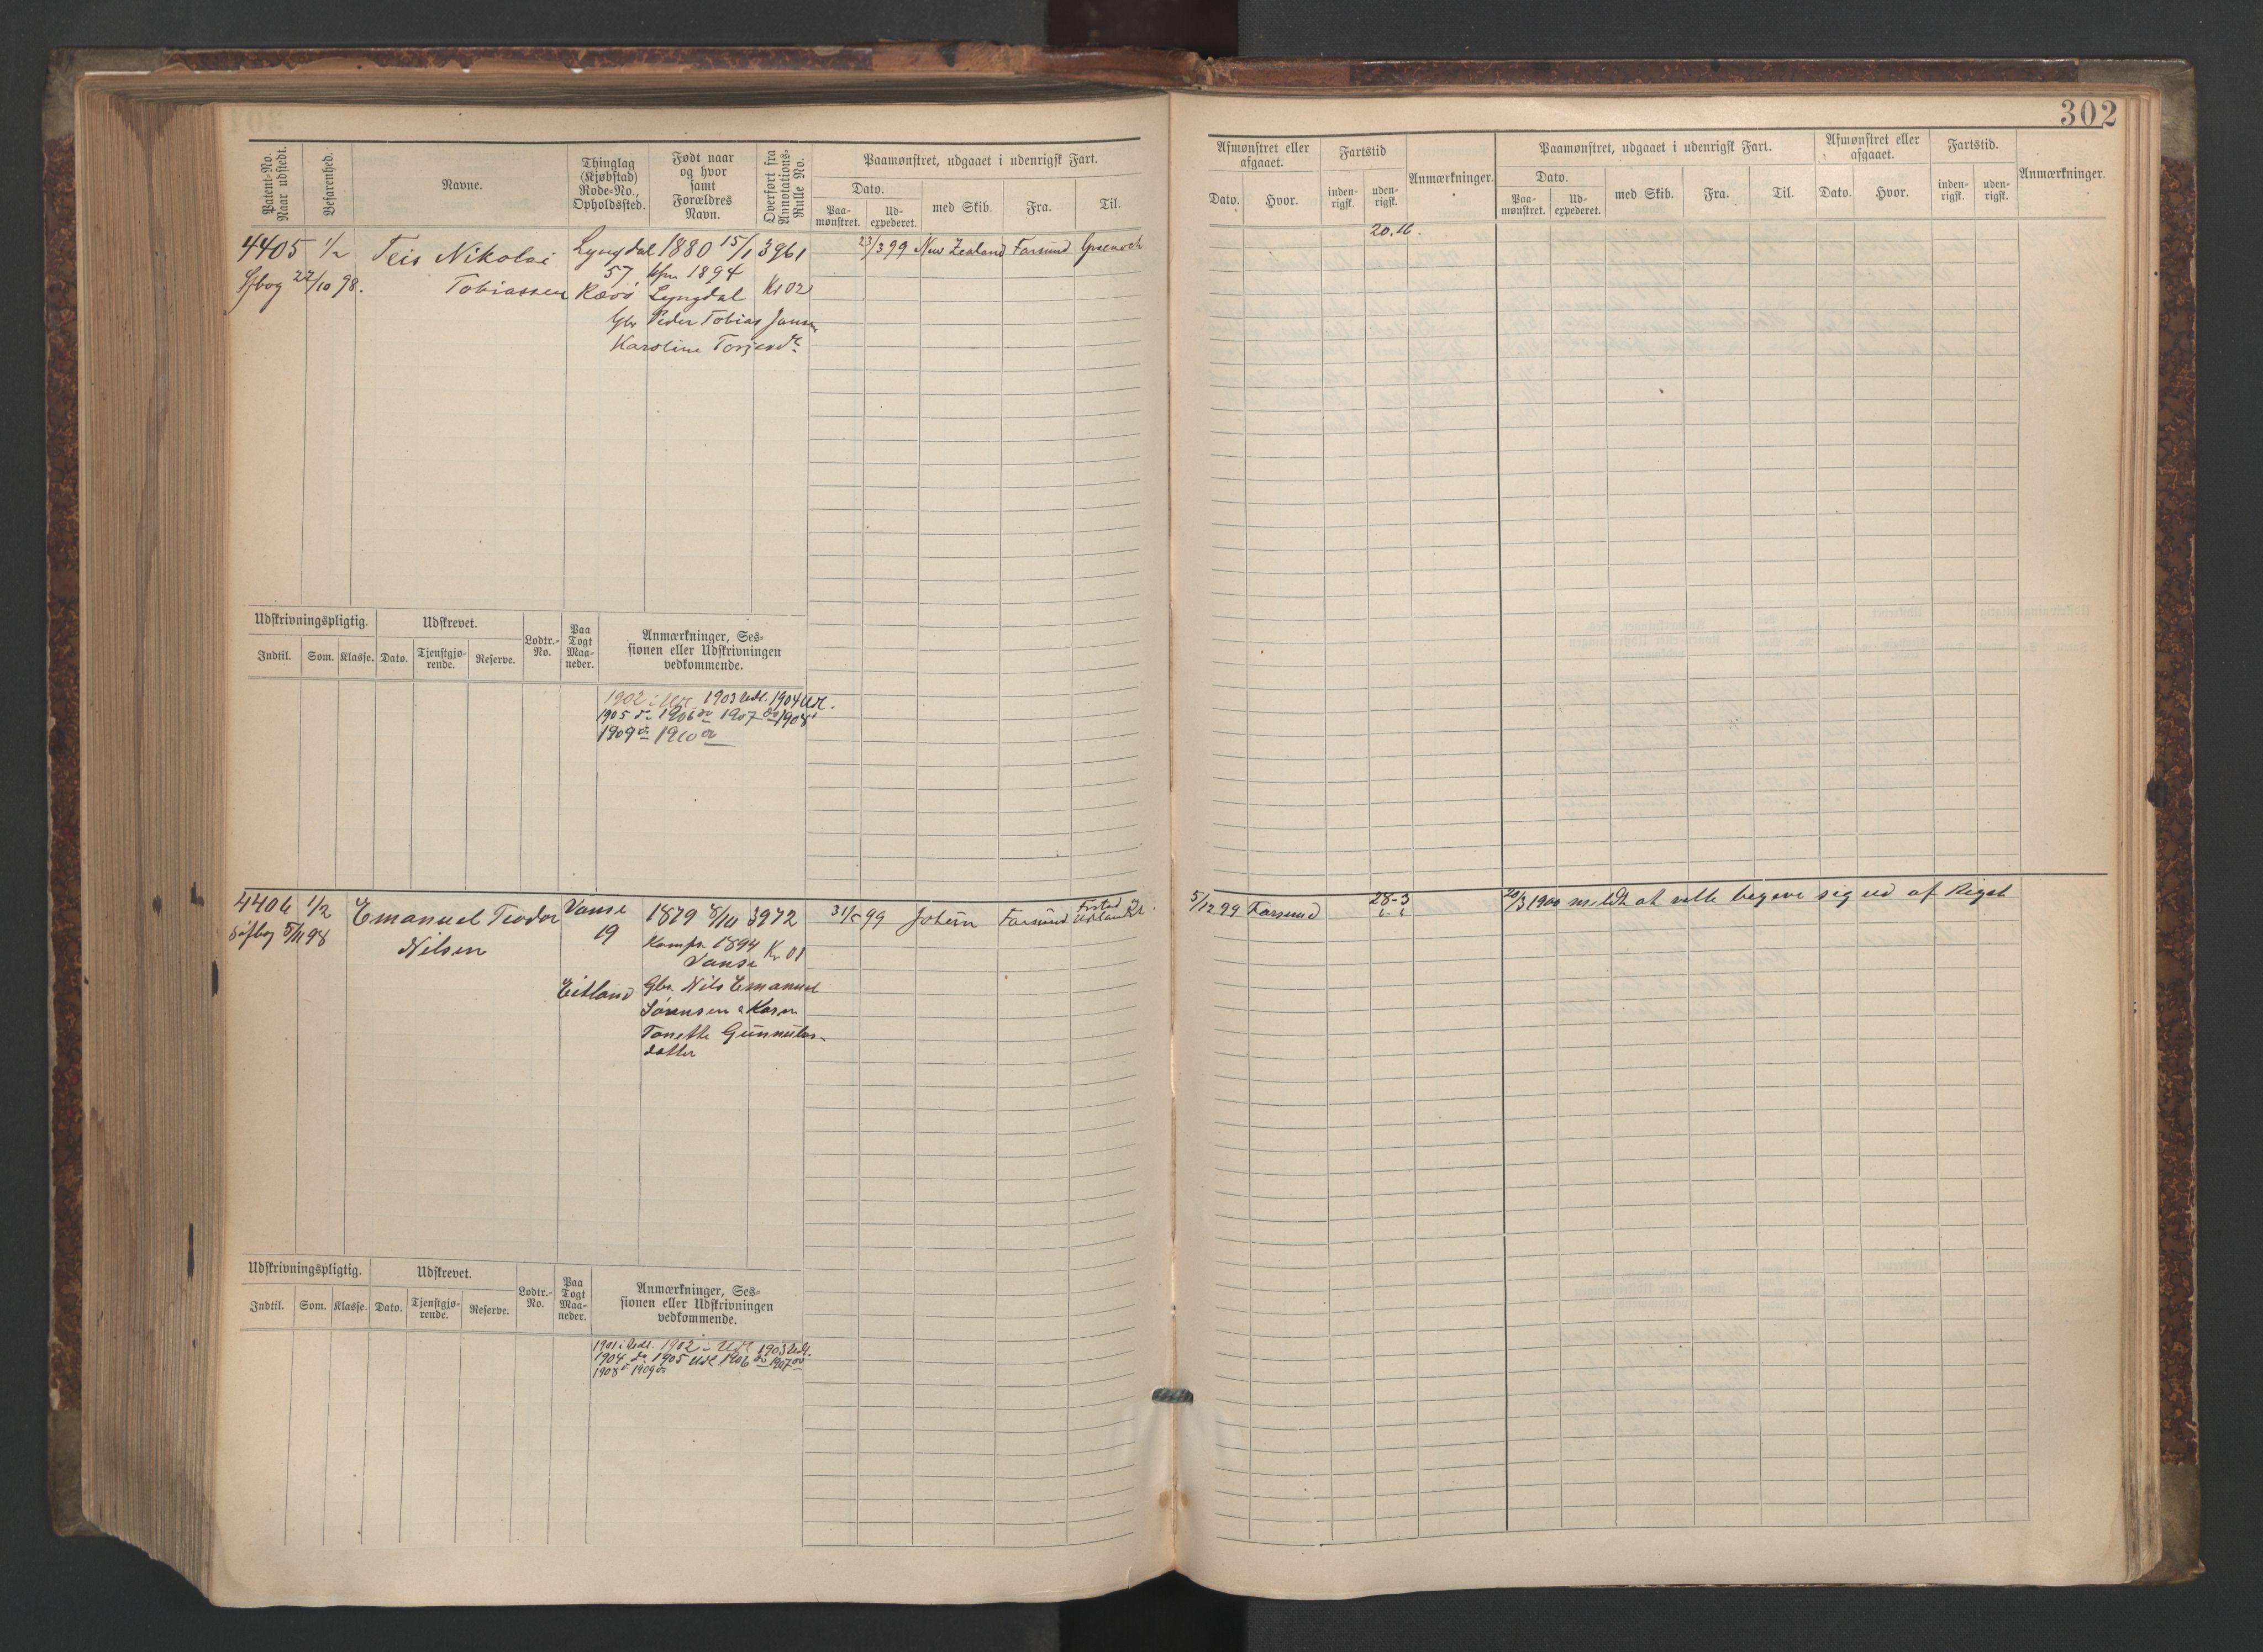 302
Patent-No. Naar udstedt.
Befarenhed.
Navne.
Thinglag (Kjøbstad) Rode-No., Opholdssted.
Født naar og hvor samt Forældres Navn.
Overført fra Annotations-Rulle No.
Paamønstret, udgaaet i udenrigsk Fart.
Dato.
Paa-mønstret.
Ud-expederet.
med Skib.
Fra.
Til.
Afmønstret eller afgaaet.
Dato.
Hvor.
Fartstid
inden-rigsk.
uden-rigsk.
Anmærkninger.
Paamønstret, udgaaet i udenrigsk Fart.
Dato.
Paa-mønstret.
Ud-expederet.
med Skib.
Fra.
Til.
Afmønstret eller afgaaet.
Dato.
Hvor.
Fartstid.
inden-rigsk.
uden-rigsk.
Anmærkninger.
4405 1/2 Teis Nikolai Lyngdal 1880 15/1 3961 23/3 99 New Zealand Farsund Greenock 20.16.
Sfbog 22/10 98. Tobiassen 57 Kfm 1894
Rævö Lyngdal Kr 02
Gbr Peder Tobias Jansen
Karoline Torjesdr
Udskrivningspligtig.
Indtil.
Som.
Klasse.
Udskrevet.
Dato.
Tjenstgjø-rende.
Reserve.
Lodtr.-No.
Paa Togt Maa-neder.
Anmærkninger, Ses-
sionen eller Udskrivningen
vedkommende.
1902 i Udl. 1903 Udl. 1904 Udl.
1905 do 1906 do 1907 do 1908
1909 do 1910 do
4406 1/2 Emanuel Teodor Vanse 1879 8/10 3972 31/5 99 Farsund 5/12 99 Farsund 28-3 20/3 1900 meldt at ville begive sig ud af Riget
Söfbog 5/11 98 Nilsen 19 Komf. 1894
Vanse Kr 01
Eitland Gbr. Nils Emanuel
Sørensen & Karen
Tonette Gunnulos-
datter
Udskrivningspligtig.
Indtil.
Som.
Klasse.
Udskrevet.
Dato.
Tjenstgjø-rende.
Reserve.
Lodtr.-No.
Paa Togt Maa-neder.
Anmærkninger, Ses-
sionen eller Udskrivningen
vedkommende.
1901 i Udl. 1902 i Udl 1903 Udl.
1904 do 1905 Udl 1906 do 1907 do
1908 do 1909 do